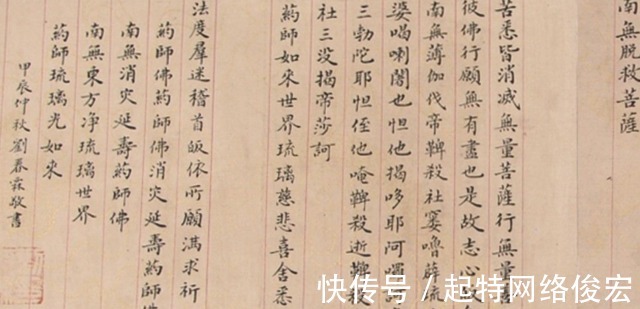 南無脫救菩薩
苦悉皆消滅無量菩薩行無量
彼佛行願無有盡也是故志心
南無薄伽伐帝鞞殺社窶嚕薜流
婆喝喇闍也怛他揭哆耶阿囉
三勃陀耶怛侄他唵鞞殺逝鞞殺
社三没揭帝莎訶
葯師如來世界琉璃慈悲喜舍悉
法度羣迷稽首皈依所願滿求祈
葯師佛葯師佛消灾延壽葯師
南無消灾延壽葯師佛
南無東方净琉璃世界
葯師琉璃光如來
甲辰仲秋劉春霖敬書
快传号／起特网络俊宏